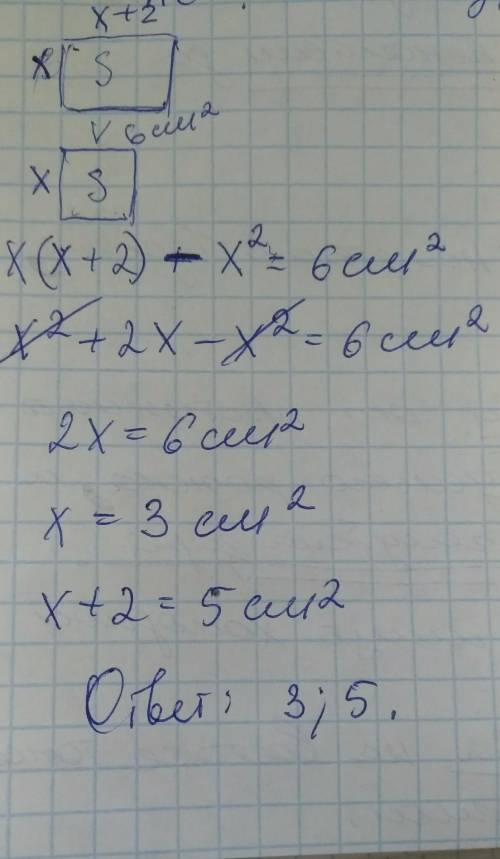 x+2
x S
V 6 см²
x S
x(x+2) - x² = 6 см²
x² + 2x - x² = 6 см²
2x = 6 см²
x = 3 см²
x+2 = 5 см²
Ответ: 3; 5.